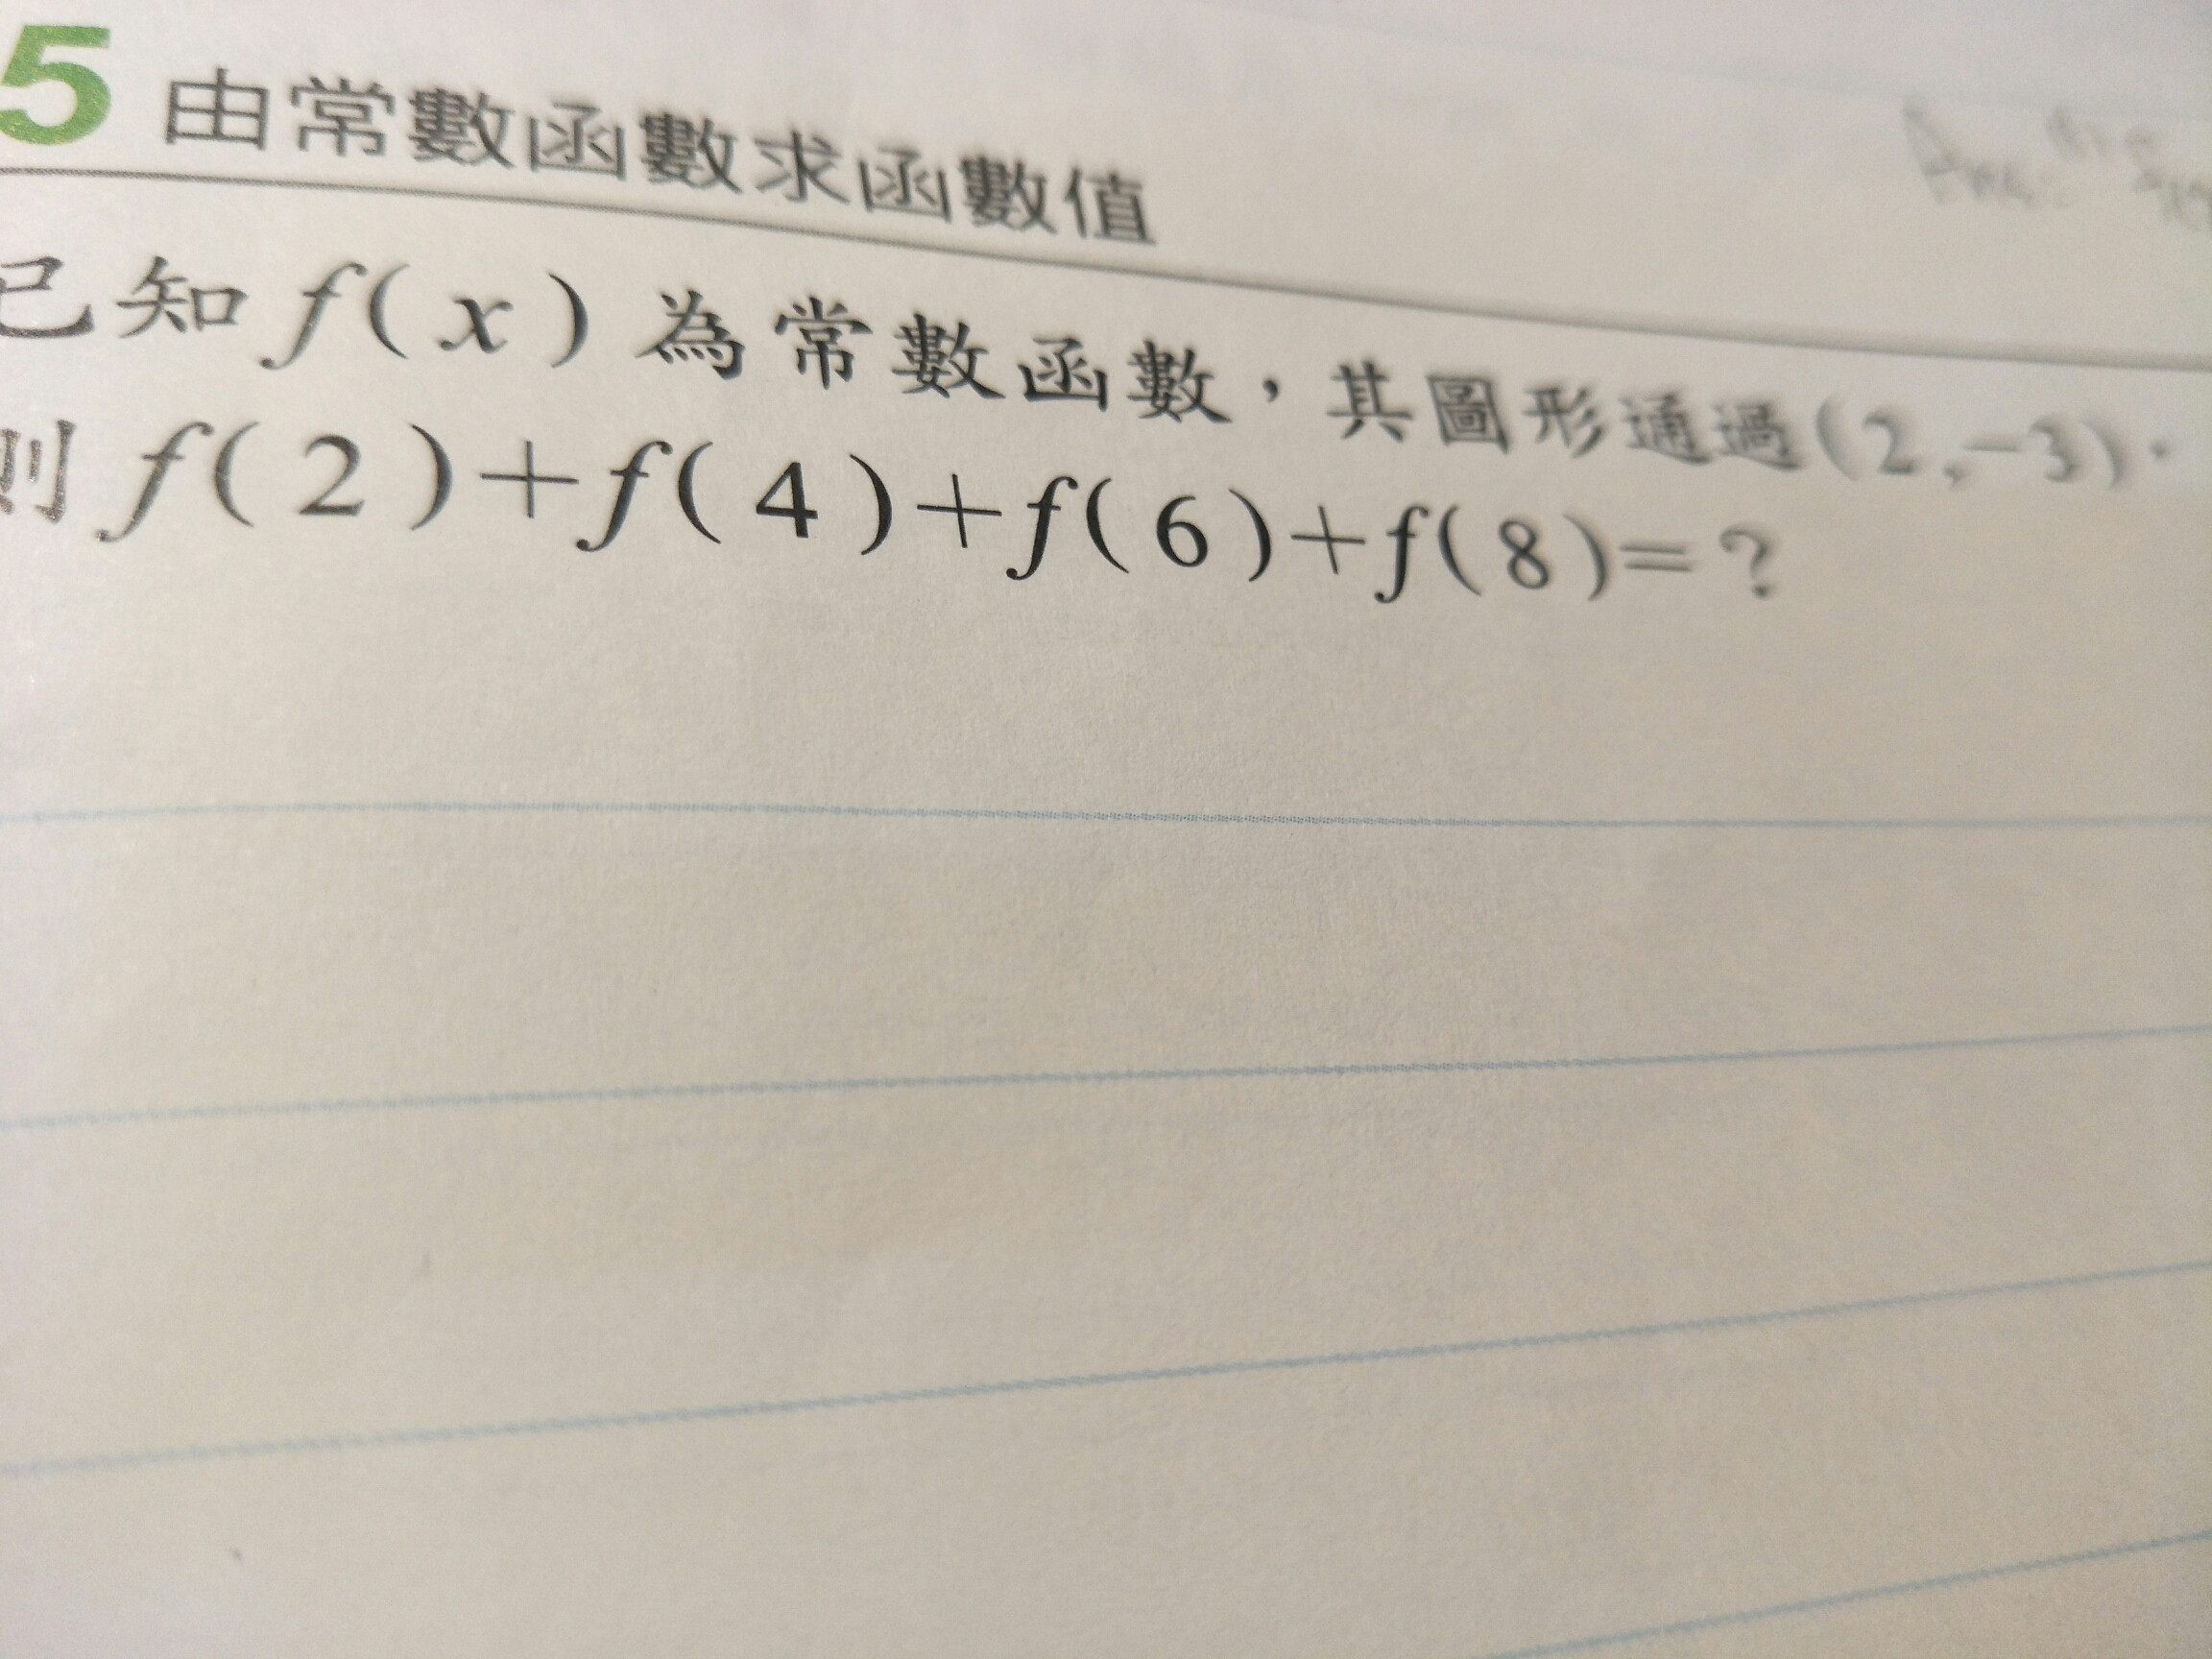 5 由常數函數求函數值
已知 f(x) 為常數函數，其圖形通過(2,-3)，
則 f(2)+f(4)+f(6)+f(8)=？